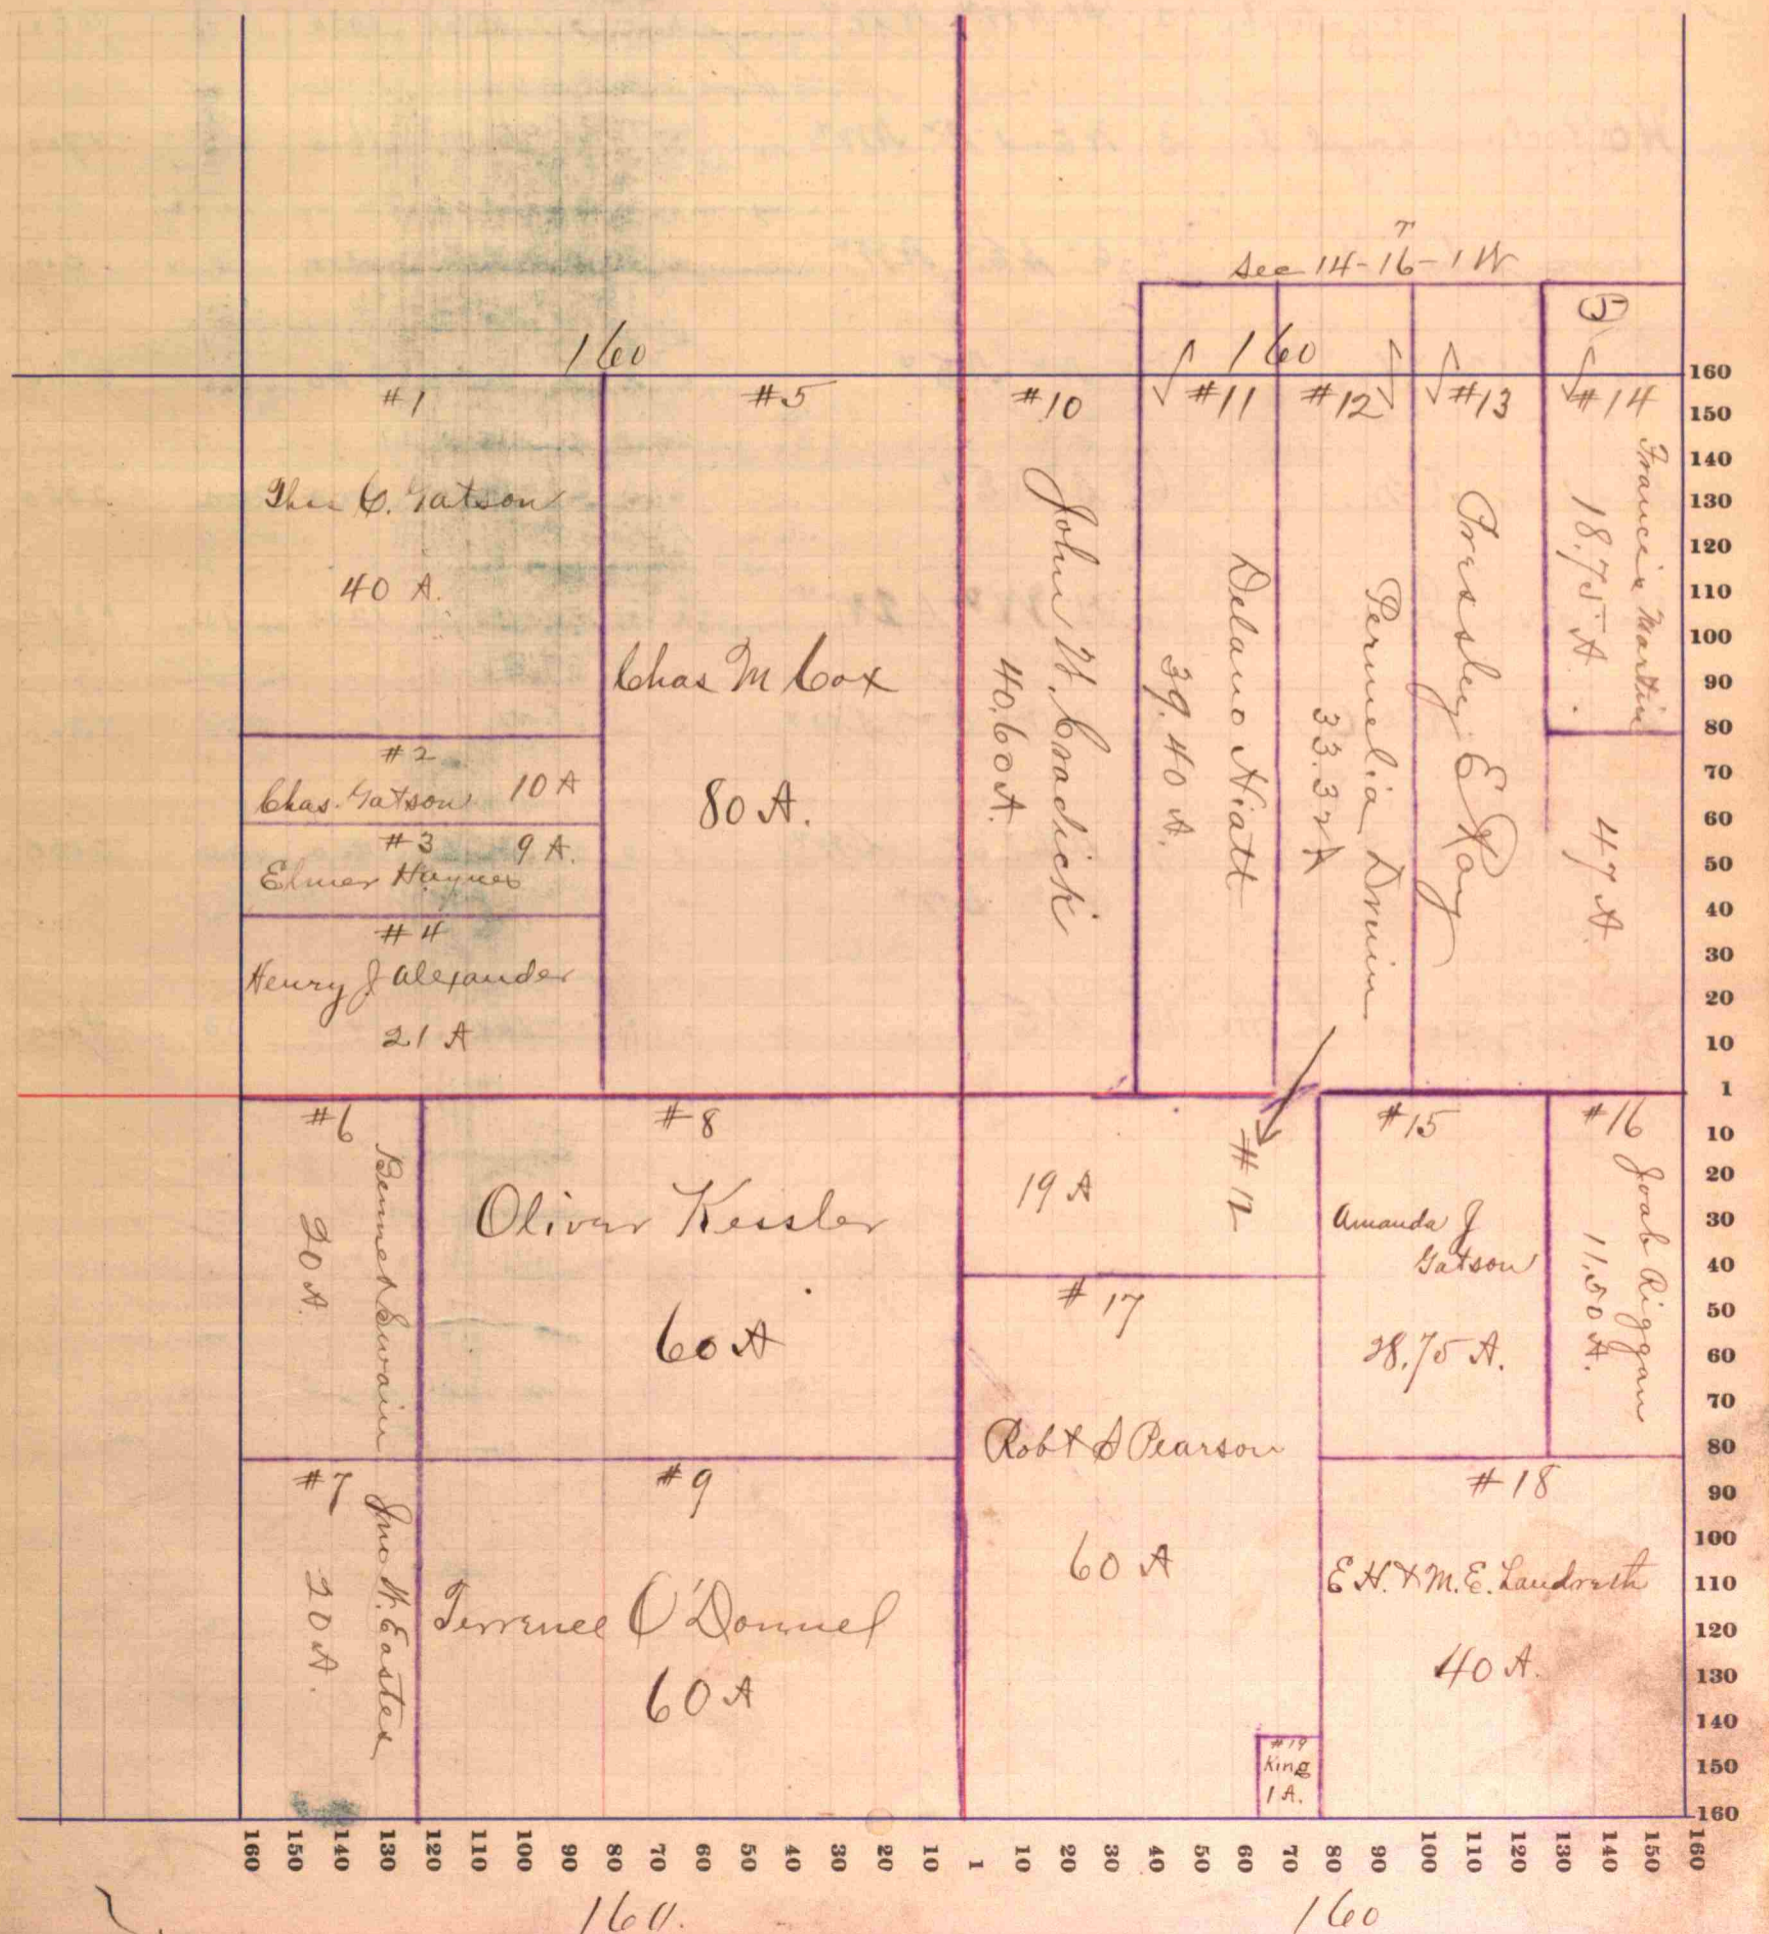 Sec 14-16-1W
160
160
5
#1
C. Gatson
40 A.
#2
Chas. Gatson 10 A
#3
9 A.
Elmer Haynes
#4
Henry J Alexander
21 A
#5
Chas M Cox
80 A.
#10
John W. Cradick
40.60 A.
#11
Delano Hiatt
39.40 A.
#12
Permelia Druin
33.32 A
#13
Pressley E Ray
47 A
#14
Francis Martin
18.75 A.
#6
Bennet Swain
20 A.
#7
Jno. W. Eastes
20 A.
#8
Oliver Kessler
60 A
#9
Terrence O'Donnel
60 A
#12
19 A
#17
Robt S Pearson
60 A
#15
Amanda J
Gatson
28.75 A.
#16
Joab Riggan
11.50 A.
#18
E H. & M. E. Landreth
40 A.
#19
King
1 A.
160
150
140
130
120
110
100
90
80
70
60
50
40
30
20
10
1
10
20
30
40
50
60
70
80
90
100
110
120
130
140
150
160
160 150 140 130 120 110 100 90 80 70 60 50 40 30 20 10 1 10 20 30 40 50 60 70 80 90 100 110 120 130 140 150 160
160.
160